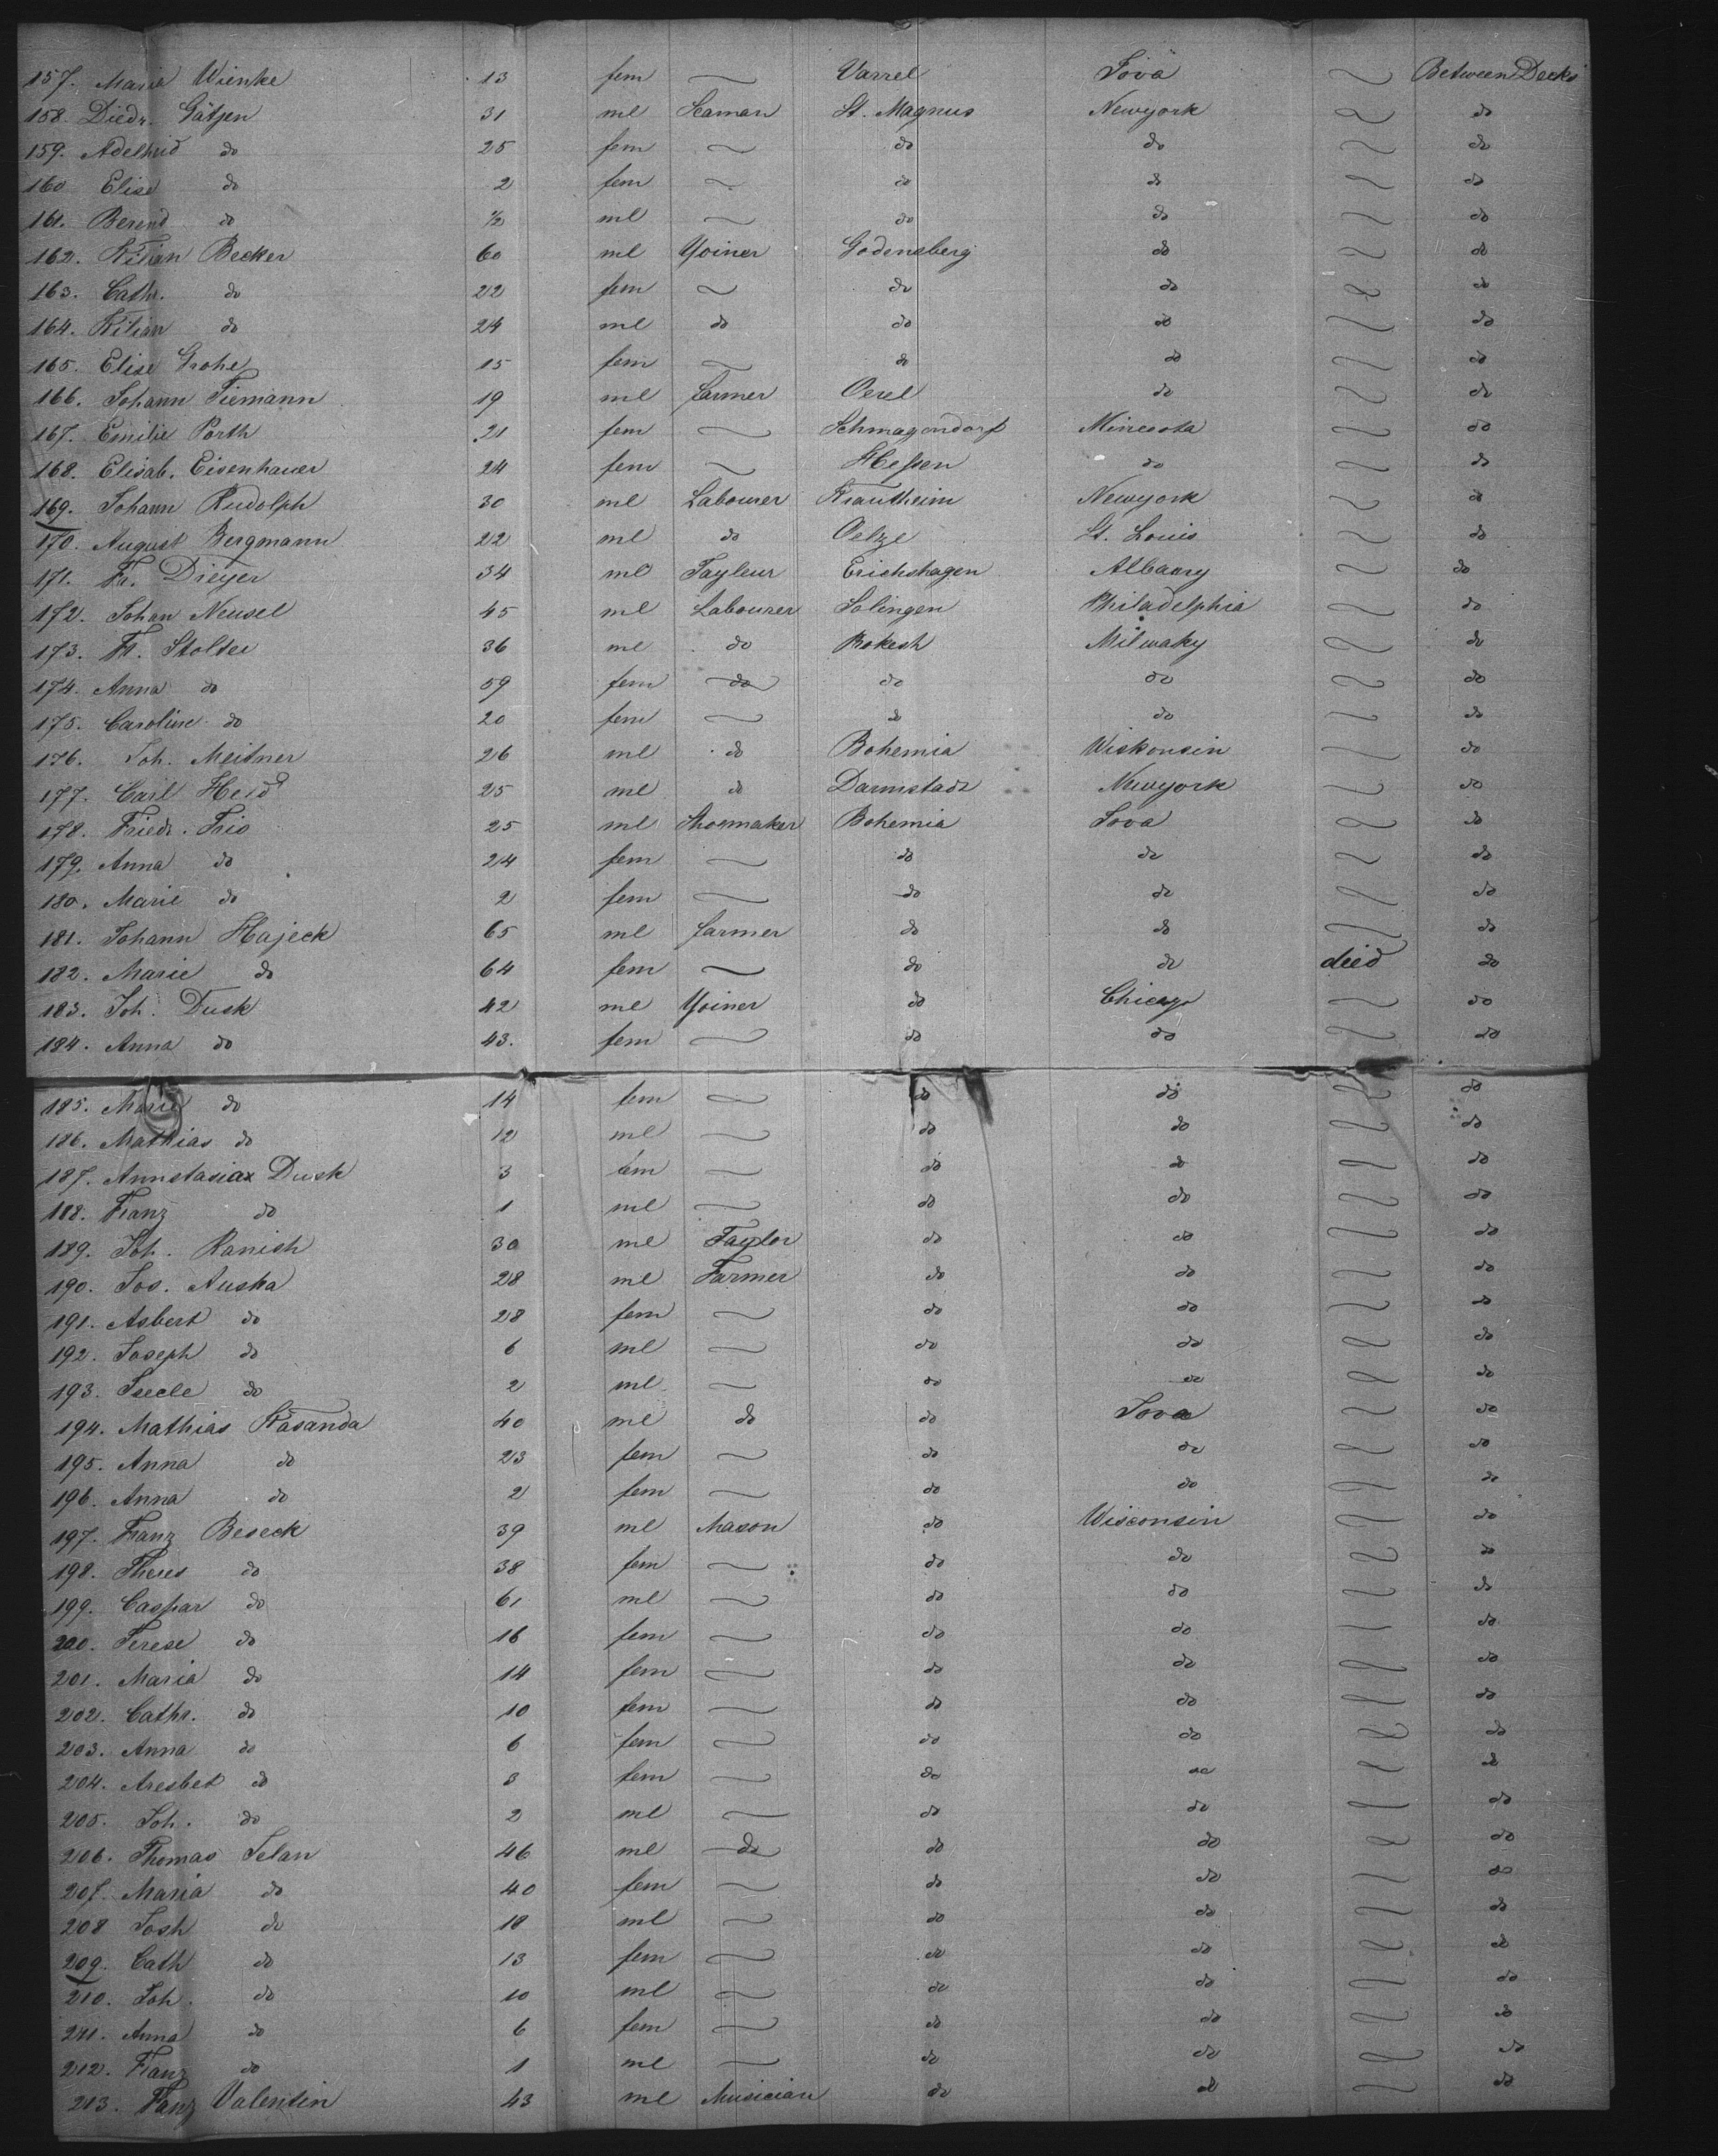 157. Maria Wienke 13 fem — Varrel Iova Between Decks
158. Diedr. Gätjen 31 ml Seaman St. Magnus Newyork do
159. Adelheid do 25 fem — do do do
160 Elise do 2 fem — do do do
161. Berend do ½ ml — do do do
162. Kilian Becker 60 ml Yoiner Godensberg do do
163. Cath. do 22 fem — do do do
164. Kilian do 24 ml do do do do
165. Elise Grohe 15 fem — do do do
166. Johann Tiemann 19 ml farmer Oerel do do
167. Emilie Porth 21 fem — Schmagendorf Minesota do
168. Elisab. Eisenhauer 24 fem — Hessen do do
169. Johann Rudolph 30 ml Labourer Krautheim Newyork do
170. August Bergmann 22 ml do Oelze St. Louis do
171. Fr. Dieyer 34 ml Tayleur Erichshagen Albany do
172. Johan Neusel 45 ml Labourer Solingen Philadelphia do
173. Fr. Stolter 36 ml do Rokesh Milwaky do
174. Anna do 59 fem do do do do
175. Caroline do 20 fem — do do do
176. Joh. Meitner 26 ml do Bohemia Wiskonsin do
177. Carl Heid 25 ml do Darmstadt Newyork do
178. Friedr. Trio 25 ml Shoemaker Bohemia Iova do
179. Anna do 24 fem — do do do
180. Marie do 2 fem — do do do
181. Johann Hajeck 65 ml farmer do do do
182. Marie do 64 fem — do do died do
183. Joh. Dusk 42 ml Yoiner do Chicago do
184. Anna do 43. fem — do do do
185. Marie do 14 fem — do do do
186. Mathias do 12 ml — do do do
187. Annstasia Dusk 3 fem — do do do
188. Franz do 1 ml — do do do
189. Joh. Kanish 30 ml Taylor do do do
190. Jos. Auska 28 ml Farmer do do do
191. Asbert do 28 fem — do do do
192. Joseph do 6 ml — do do do
193. do 2 ml — do do do
194. Mathias Kasanda 40 ml do do Iova do
195. Anna do 23 fem — do do do
196. Anna do 2 fem — do do do
197. Franz Beseck 39 ml Mason do Wisconsin do
198. Theres do 38 fem — do do do
199. Caspar do 61 ml — do do do
200. Terese do 16 fem — do do do
201. Maria do 14 fem — do do do
202. Cathr. do 10 fem — do do do
203. Anna do 6 fem — do do do
204. Aresbet do 3 fem — do do do
205. Joh. do 2 ml — do do do
206. Thomas Selan 46 ml do do do do
207. Maria do 40 fem — do do do
208 Josh do 18 ml — do do do
209. Cath do 13 fem — do do do
210. Joh. do 10 ml — do do do
211. Anna do 6 fem — do do do
212. Franz do 1 ml — do do do
213. Franz Valentin 43 ml Musician do do do